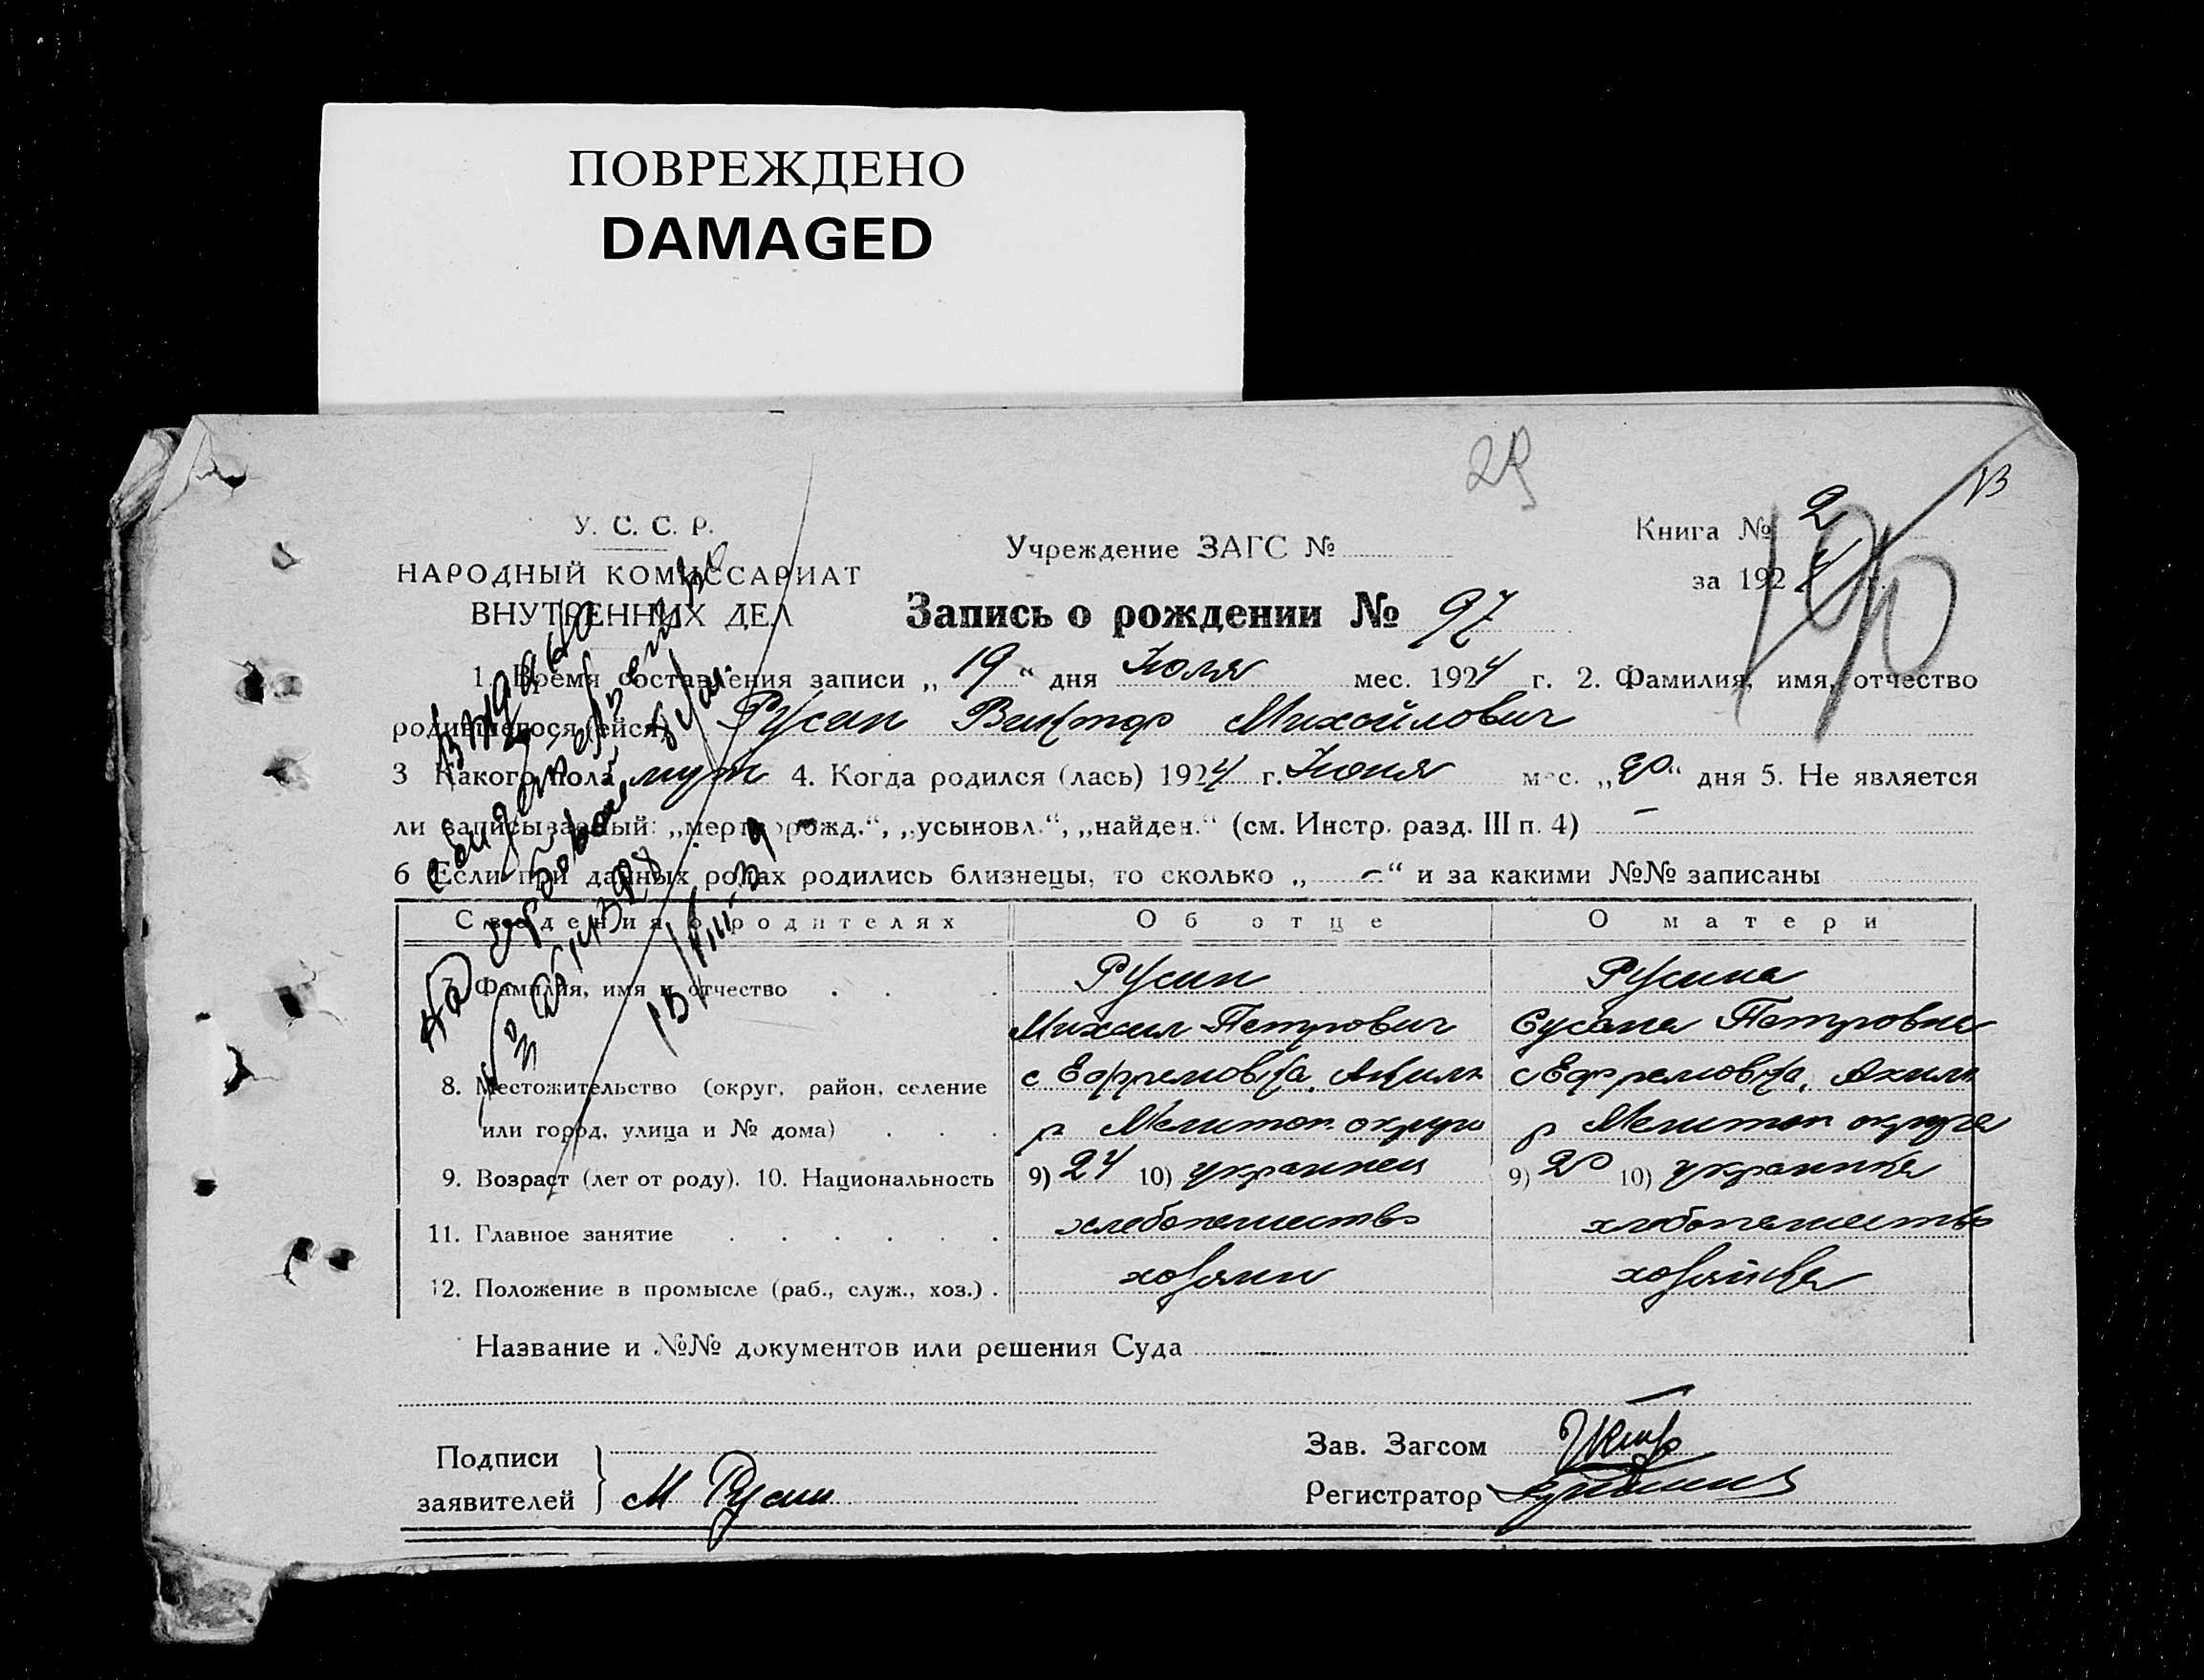 ПОВРЕЖДЕНО
DAMAGED
29
В
У. С. С. Р.
НАРОДНЫЙ КОМИССАРИАТ
ВНУТРЕННИХ ДЕЛ
Учреждение ЗАГС №
Книга № 2
за 1924
Запись о рождении № 97
1. Время составления записи „19“ дня Июля мес. 1924 г. 2. Фамилия, имя, отчество
родившегося (ейся) Русин Виктор Михайлович
3 Какого пола муж 4. Когда родился (лась) 1924 г. Июня мес. „20“ дня 5. Не является
ли записываемый: „мертворожд.“, „усыновл.“, „найден.“ (см. Инстр. разд. III п. 4) –
6 Если при данных родах родились близнецы, то сколько „–“ и за какими №№ записаны
Сведения о родителях Об отце О матери
7. Фамилия, имя и отчество . . . Русин Русина
Михаил Петрович Сусана Петровна
8. Местожительство (округ, район, селение с Ефремовка, Аким с Ефремовка, Аким
или город, улица и № дома) . . . р Мелитоп округа р Мелитоп округа
9. Возраст (лет от роду). 10. Национальность 9) 24 10) украинец 9) 20 10) украинка
11. Главное занятие . . . . . . хлебопашество хлебопашество
12. Положение в промысле (раб., служ., хоз.) . хозяин хозяйка
Название и №№ документов или решения Суда
Подписи
заявителей М Русин
Зав. Загсом
Регистратор